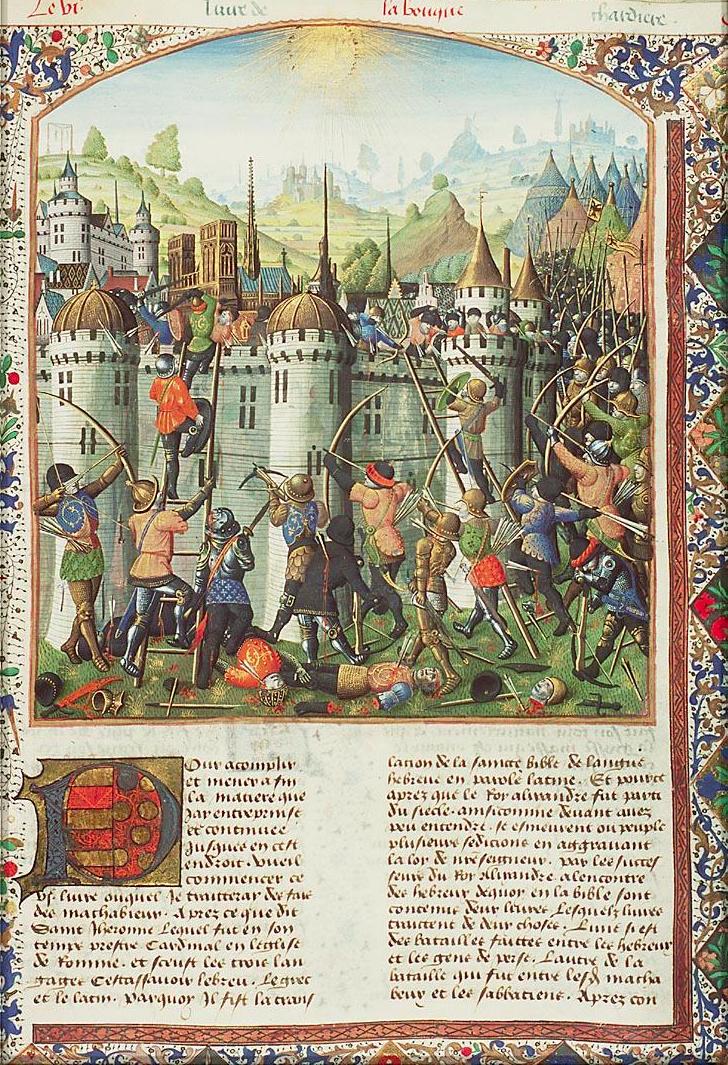 Le vi livre de la bouque chardiere
Pour acomplir
et mener a fin
la matiere que
Jay entreprinse
et continuee
Jusques en cest
endroit. vueil
commencer ce
vje livre ouquel Je traitteray des faiz
des machabieux. Aprez ce que dit
Saint Iherosme Lequel fut en son
temps prestre Cardinal en leglise
de Romme. et sceust les trois lan
gages Cestassavoir lebreu. Le grec
et le latin. parquoy Il fist la trans
lacion de la saincte bible de langue
hebreue en parole latine. Et pource
aprez que le Roy alixandre fut parti
du siecle. ainsi comme devant avez
peu entendre. se esmeurent ou peuple
plusieurs sedicions en aggravant
la loy de nostre seigneur. par les succes
seurs du Roy Alixandre. a lencontre
des hebreux dequoy en la bible sont
contenus deux livres Lesquelz livres
traictent de deux choses. Lune si est
des batailles faittes entre les hebreux
et les gens de perse. Lautre de la
bataille qui fut entre lesd macha
beux et les sabbatiens. Aprez con